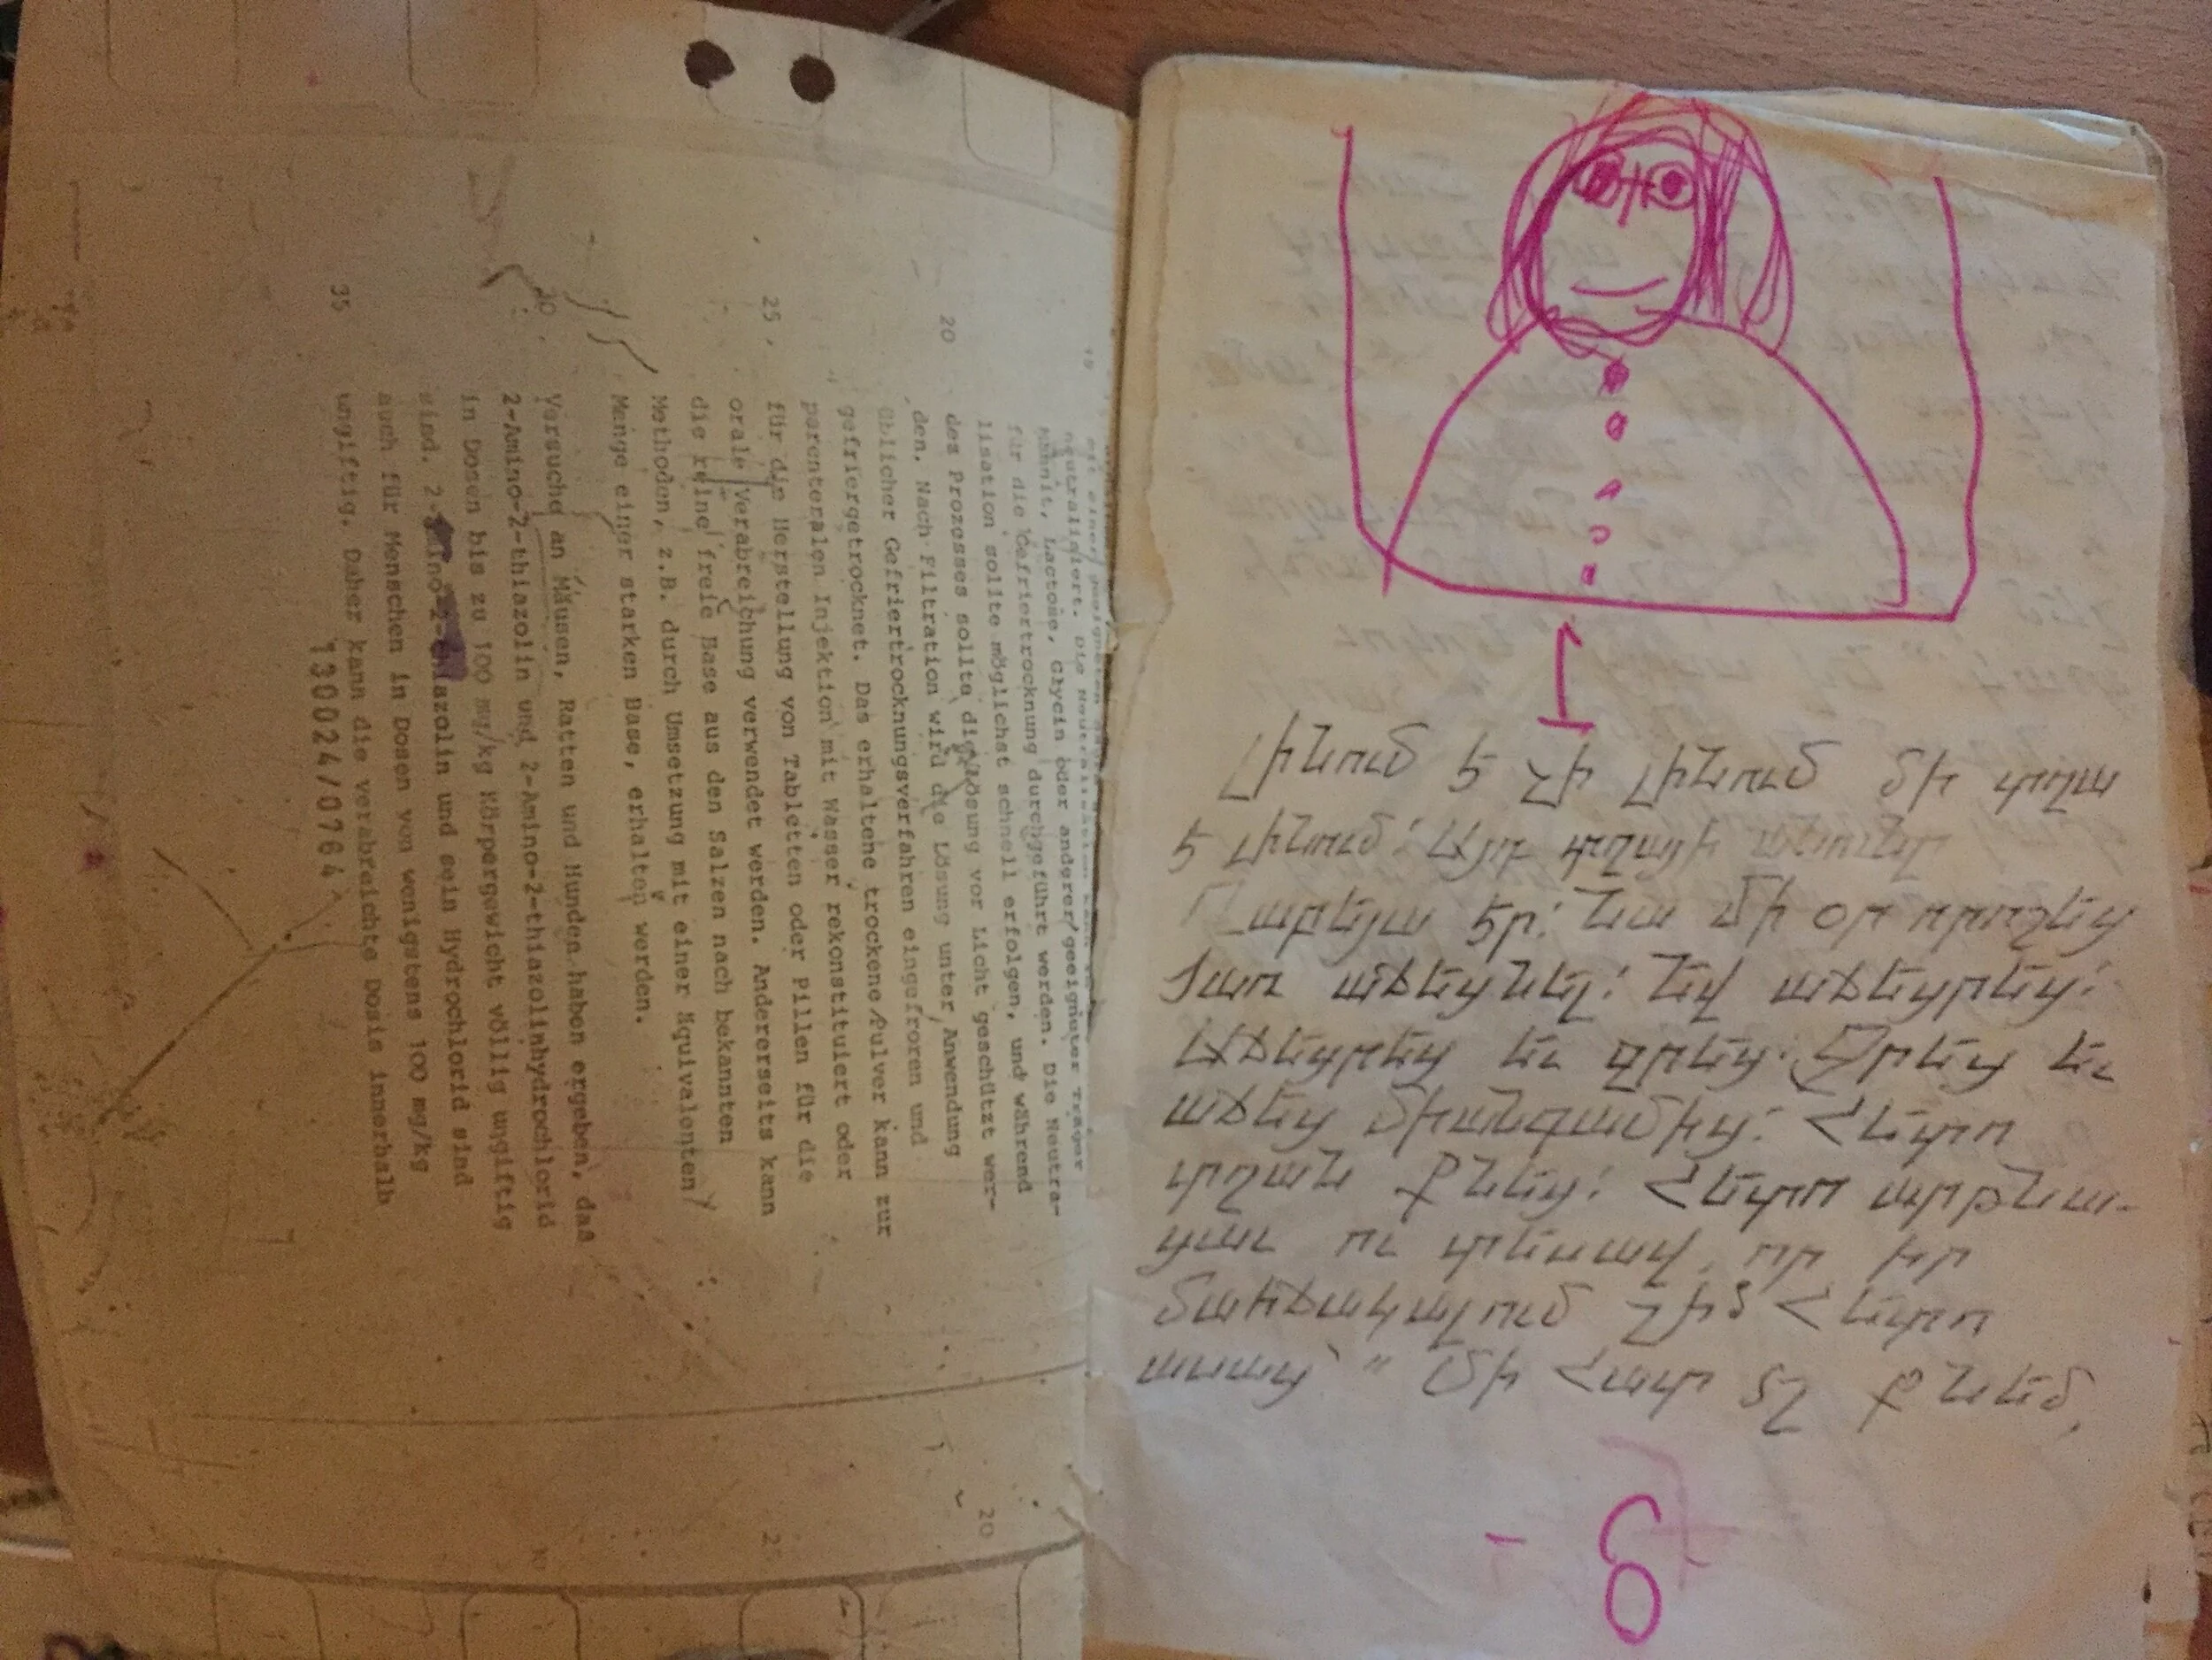 mit einer geeigneten
neutralisiert. Die Neutralisation kann
Mannit, Lactose, Glycin oder anderer geeigneter Träger
für die Gefriertrocknung durchgeführt werden. Die Neutra-
lisation sollte möglichst schnell erfolgen, und während
20 des Prozesses sollte die Lösung vor Licht geschützt wer-
den. Nach Filtration wird die Lösung unter Anwendung
üblicher Gefriertrocknungsverfahren eingefroren und
gefriergetrocknet. Das erhaltene trockene Pulver kann zur
parenteralen Injektion mit Wasser rekonstituiert oder
25 für die Herstellung von Tabletten oder Pillen für die
orale Verabreichung verwendet werden. Andererseits kann
die reine freie Base aus den Salzen nach bekannten
Methoden, z.B. durch Umsetzung mit einer äquivalenten
Menge einer starken Base, erhalten werden.
30 Versuche an Mäusen, Ratten und Hunden haben ergeben, daß
2-Amino-2-thiazolin und 2-Amino-2-thiazolinhydrochlorid
in Dosen bis zu 100 mg/kg Körpergewicht völlig ungiftig
sind. 2-Amino-2-thiazolin und sein Hydrochlorid sind
auch für Menschen in Dosen von wenigstens 100 mg/kg
35 ungiftig. Daher kann die verabreichte Dosis innerhalb
130024/0764
20
25
30
I
Լինում է չի լինում մի տղա
է լինում: Այդ տղայի անունը
Պարելյա էր: Նա մի օր որոշեց
ծառ աճեցնել: Եվ աճեցրեց:
Աճեցրեց եւ ջրեց: Ջրեց եւ
աճեց միանգամից: Հետո
տղան քնեց: Հետո արթնա-
ցաւ ու տեսավ, որ իր
մահճակալում չի: Հետո
ասաց՝ " Մի հատ էլ քնեմ,
- 8 -